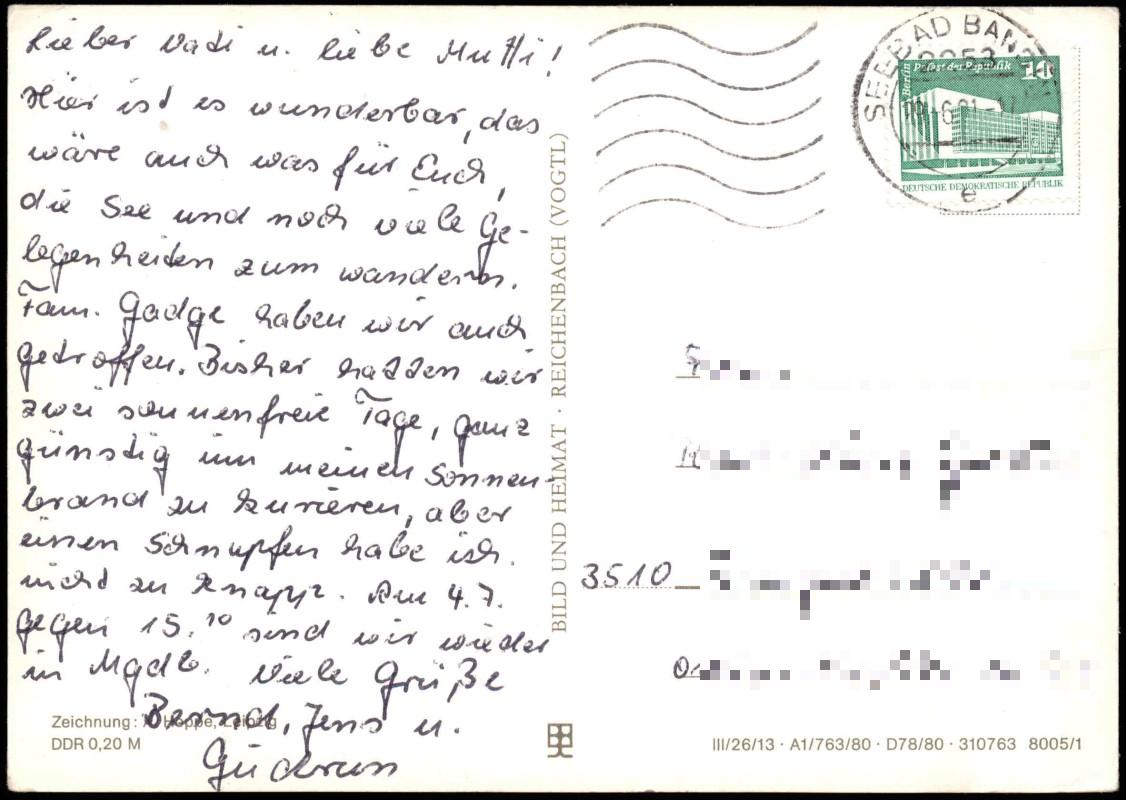 Lieber Vati u. liebe Mutti!
Hier ist es wunderbar, das
wäre auch was für Euch,
die See und noch viele Ge-
legenheiten zum wandern.
Fam. Gadge haben wir auch
getroffen. Bisher hatten wir
zwei sonnenfreie Tage, ganz
günstig um meinen Sonnen-
brand zu kurieren, aber
einen Schnupfen habe ich
nicht zu knapp. Am 4.7.
gegen 15.10 sind wir wieder
in Mgdb. Viele Grüße
Bernd, Jens u.
Gudrun
Zeichnung: Hoppe, Leipzig
DDR 0,20 M
BILD UND HEIMAT · REICHENBACH (VOGTL)
SEEBAD BANSIN
Berlin Palast der Republik 10
DEUTSCHE DEMOKRATISCHE REPUBLIK
e
3510
III/26/13 · A1/763/80 · D78/80 · 310763 8005/1